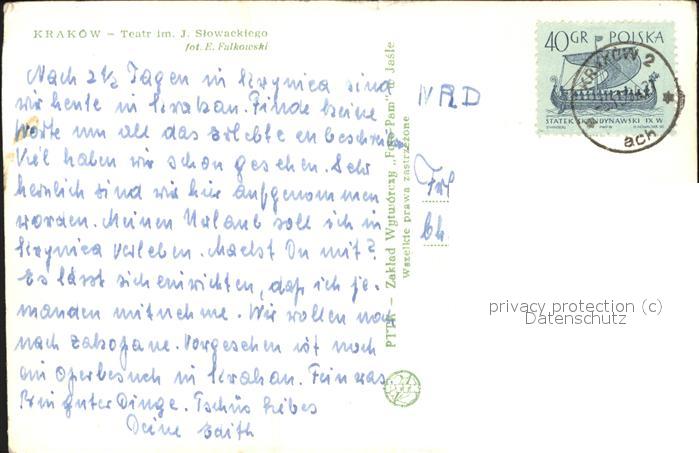 KRAKÓW – Teatr im. J. Słowackiego
fot. E. Falkowski
Nach 2 1/2 Tagen in Krynica sind
wir heute in Krakau. Finde keine
Worte um all das Erlebte zu beschreiben
Viel haben wir schon gesehen. Sehr
herzlich sind wir hier aufgenommen
worden. Meinen Urlaub soll ich in
Krynica verleben. Machst Du mit?
Es lässt sich einrichten, daß ich je-
manden mitnehme. Wir wollen noch
nach Zakopane. Vorgesehen ist noch
ein Operbesuch in Krakau. Fein was
Bin guter Dinge. Tschüs liebes
Deine Edith
PTTK – Zakład Wytwórczy „Foto-Pam" w Jaśle
Wszelkie prawa zastrzeżone
NRD
Frl
Ch
40 GR POLSKA
STATEK SKANDYNAWSKI IX W
KRAKÓW 2
ach
privacy protection (c)
Datenschutz